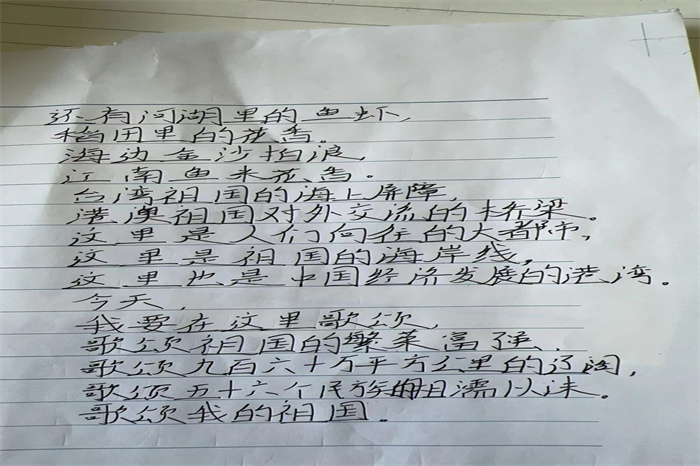 还有河湖里的鱼虾，
稻田里的花香。
海边金沙拍浪，
江南鱼米花香。
台湾祖国的海上屏障，
港澳祖国对外交流的桥梁。
这里是人们向往的大都市，
这里是祖国的海岸线，
这里也是中国经济发展的港湾。
今天，
我要在这里歌颂，
歌颂祖国的繁荣富强，
歌颂九百六十万平方公里的辽阔，
歌颂五十六个民族的相濡以沫。
歌颂我的祖国。